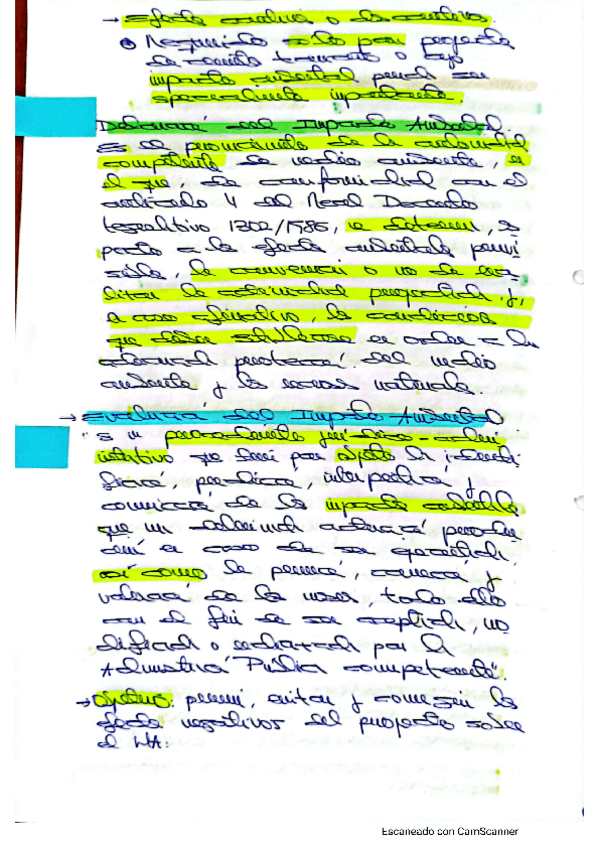 → Efecto
• Requerido sólo por proyectos
de cierto tamaño o cuyo
impacto ambiental pueda ser
especialmente importante.
Declaración del Impacto Ambiental.
Es el pronunciamiento de la autoridad
competente de medio ambiente, en
el que, de conformidad con el
artículo 4 del Real Decreto
legislativo 1302/1986, se determina, respecto
a los efectos ambientales previ
sibles, la conveniencia o no de rea-
lizar la actividad proyectada y,
en caso afirmativo, las condiciones
que deben establecerse en orden a la
adecuada protección del medio
ambiente y los recursos naturales.
→ Evaluación del Impacto Ambiental
"Es un procedimiento jurídico-admi
nistrativo que tiene por objeto la identi
ficación, predicción, interpretación y
comunicación de los impactos ambientales
que un determinado producir
en caso de ser ejecutado
así como la prevención, corrección y
valoración de los mismos, todo ello
con el fin de ser aceptado, mo
dificado o rechazado por la
Administración Pública competente".
→ Objetivo: prevenir, evitar y corregir los
efectos negativos del proyecto sobre
el MA.
Escaneado con CamScanner